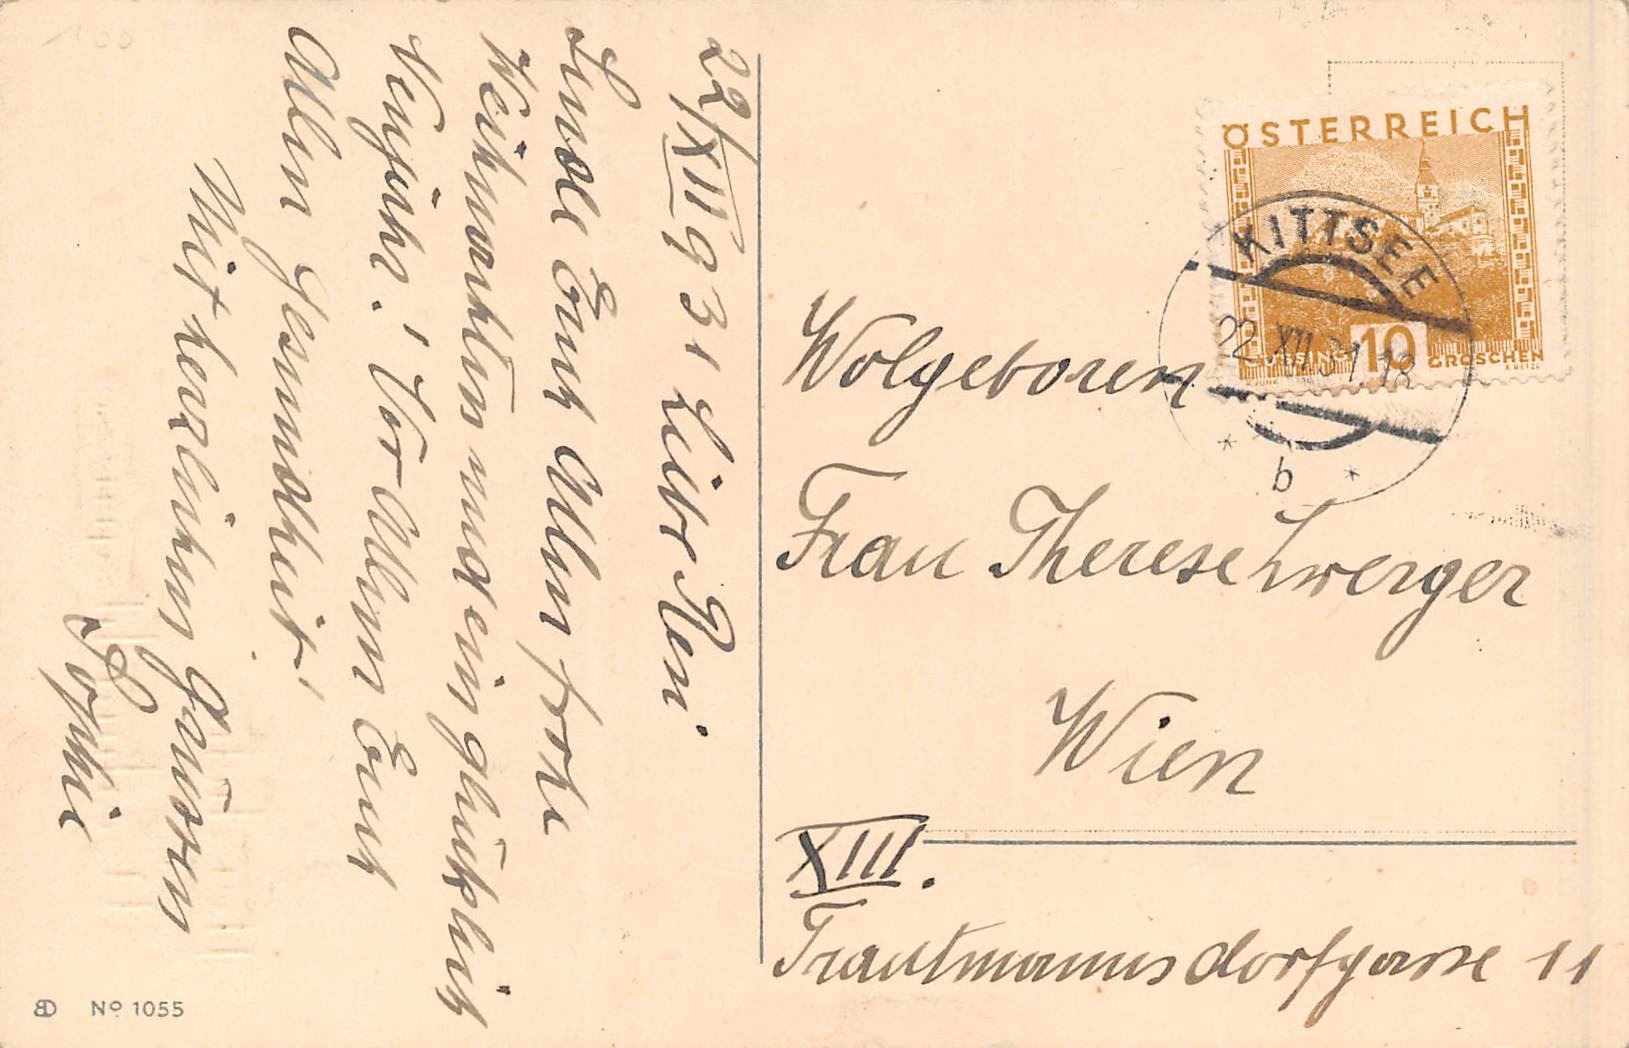 22/XII 931 Liebe Resi
Sende Euch Allen frohe
Weihnachten und ein glücklich
Neujahr! Vor Allem Euch
Allen Gesundheit!
Mit herzlichen Grüssen
Sophie
ÖSTERREICH
GÜSSING 10 GROSCHEN
KITTSEE
22.XII.31.18
* b *
Wolgeboren
Frau Therese Zwerger
Wien
XIII.
Trautmannsdorfgasse 11
BD No 1055